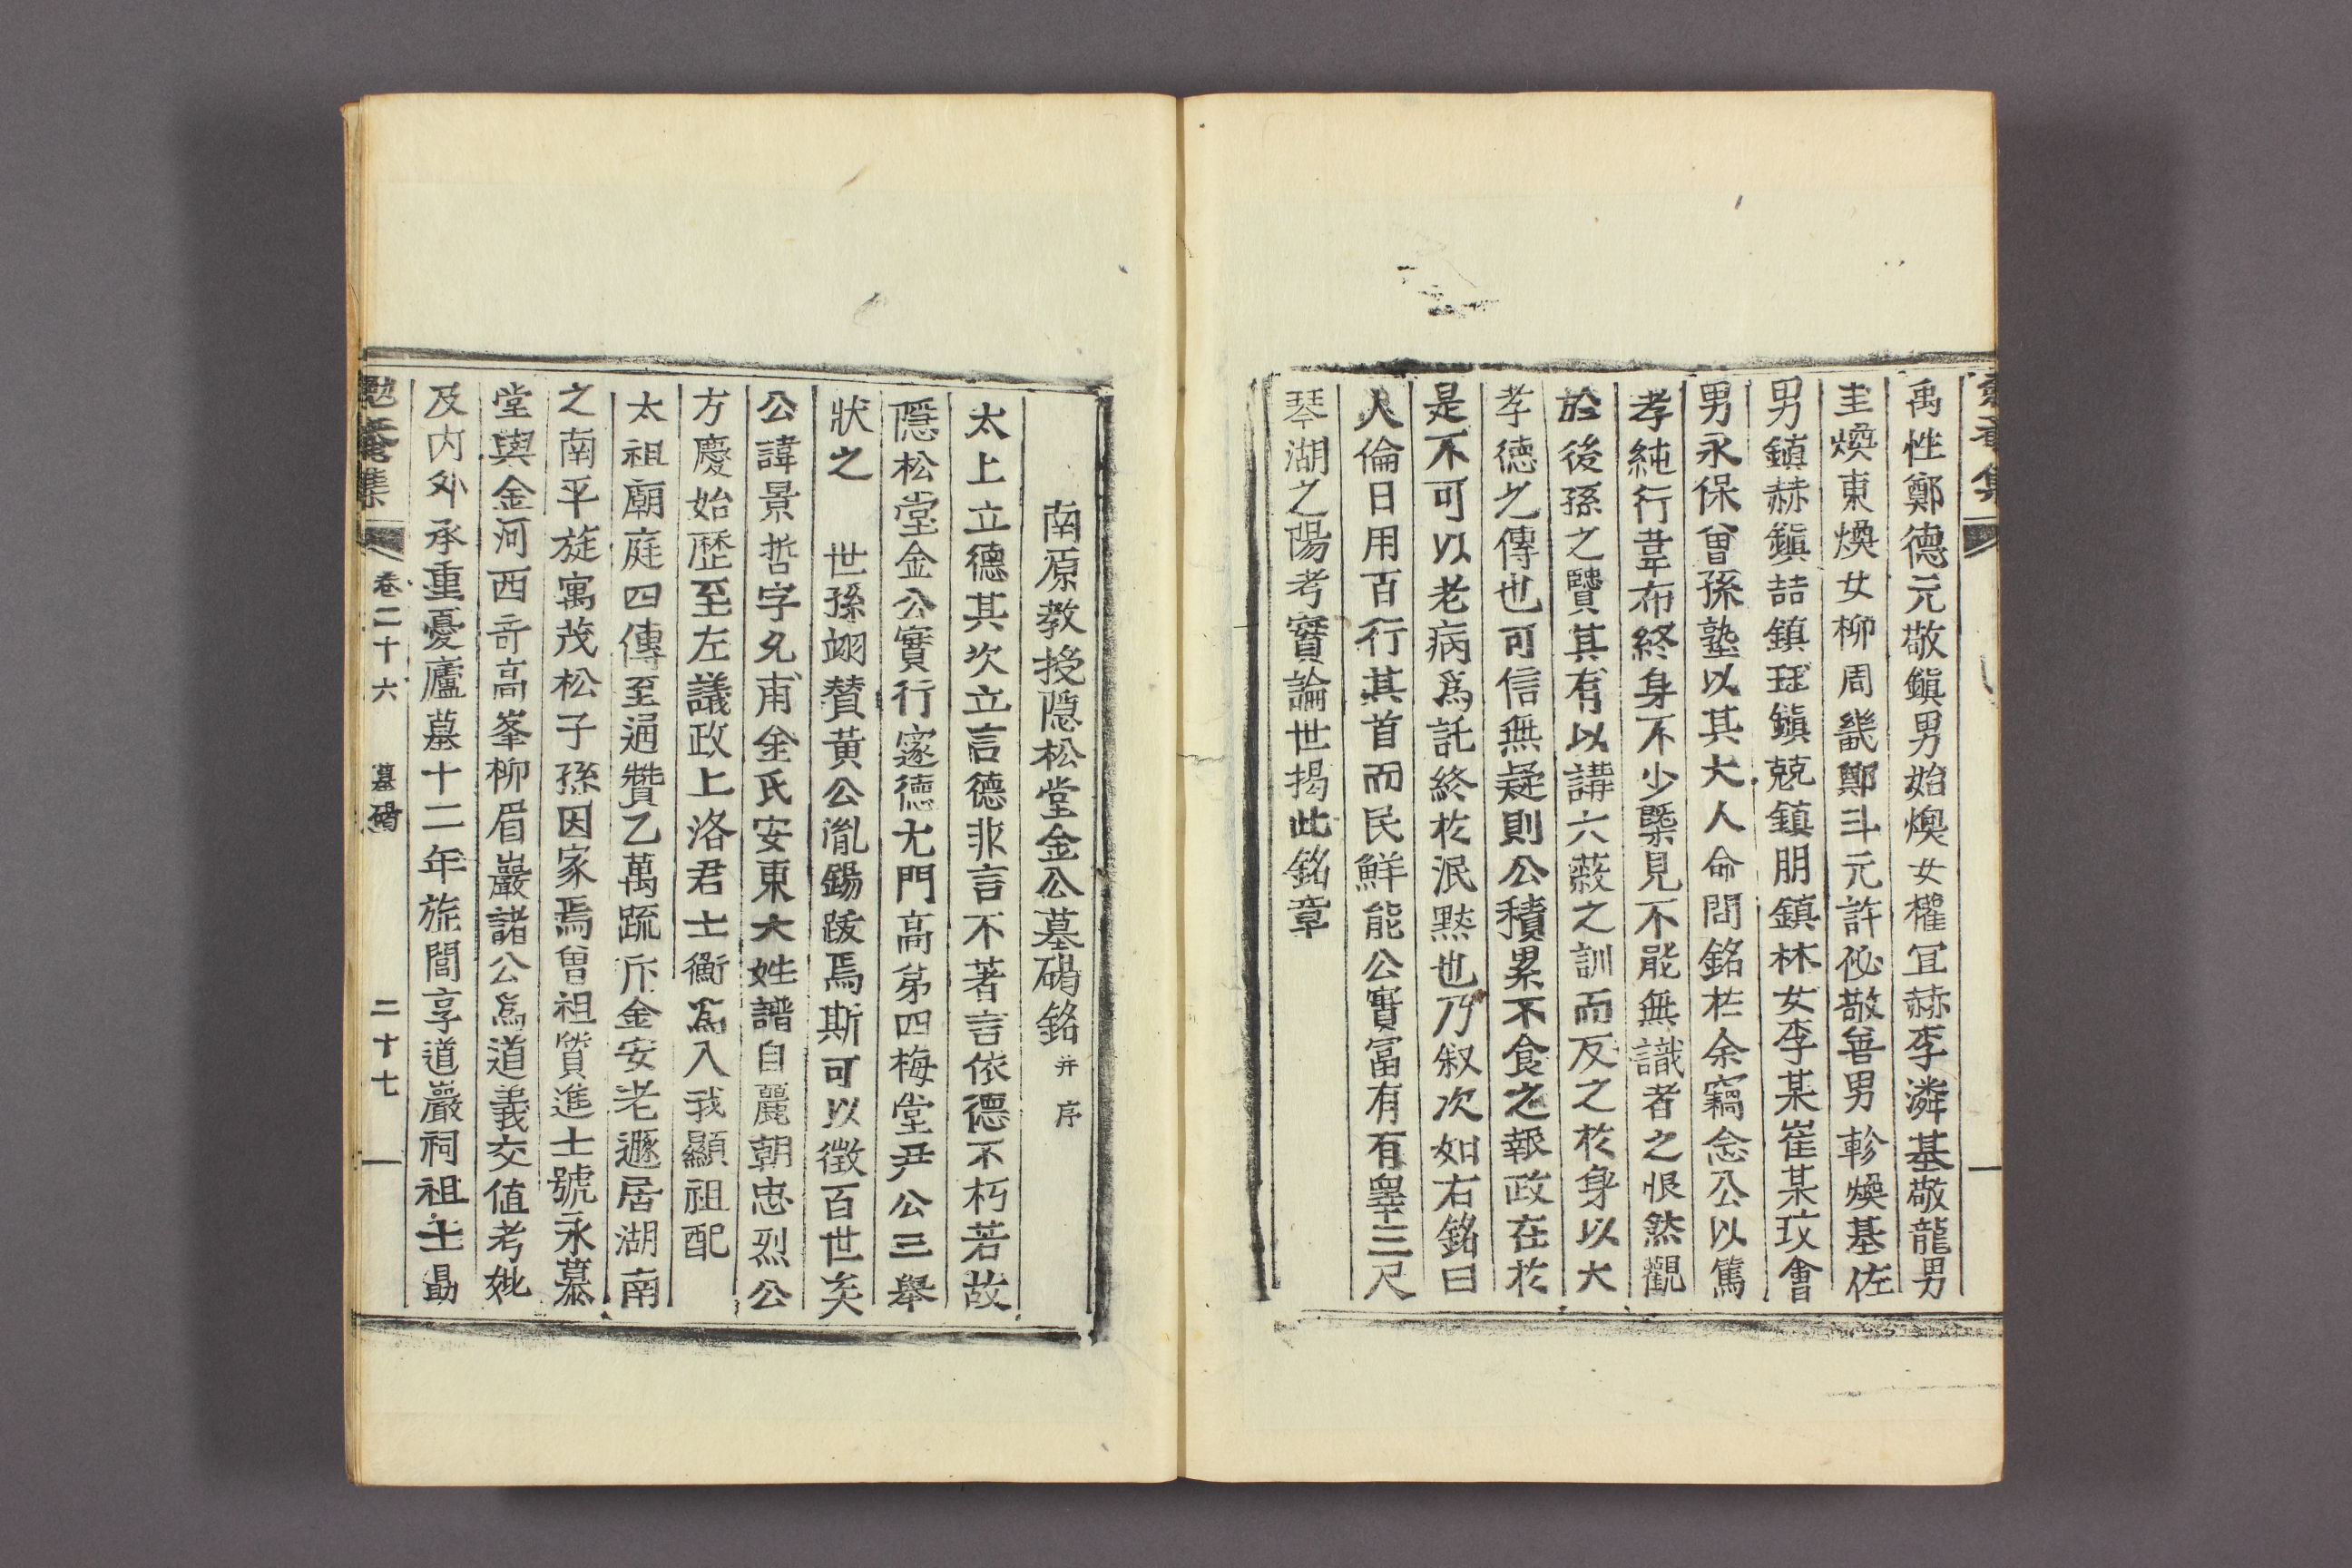 禹性鄭德元敬鎭男始煥女權冝赫李潾基敬龍男
圭煥東煥女柳周畿鄭斗元許佖敬善男軫煥基佐
男鎮赫鎭喆鎮珏鎭兢鎮朋鎮林女李某崔某玫會
男永保曾孫塾以其大人命問銘於余竊念公以篤
孝純行韋布終身不少槩見不能無識者之恨然觀
於後孫之贒其有以講六蔽之訓而反之於身以大
孝德之傳也可信無疑則公積累不食之報政在於
是不可以老病爲託終於泯黙也乃叙次如右銘曰
人倫日用百行其首而民鮮能公實富有有睪三尺
琴湖之陽考實論世揭此銘章
南原教授隱松堂金公墓碣銘 并序
太上立德其次立言德非言不著言依德不朽若故
隱松堂金公實行邃德尤門高弟四梅堂尹公三舉
狀之 世孫翊賛黃公胤錫跋焉斯可以徵百世矣
公諱景哲字允甫金氏安東大姓譜自麗朝忠烈公
方慶始歷至左議政上洛君士衡爲入我顯祖配
太祖廟庭四傳至通贊乙萬疏斥金安老遯居湖南
之南平旋寓茂松子孫因家焉曾祖質進士號永慕
堂與金河西奇高峯柳眉巖諸公爲道義交値考妣
及內外承重憂廬墓十二年旌閭享道巖祠祖士勗
勉菴集 卷二十六 墓碣 二十七